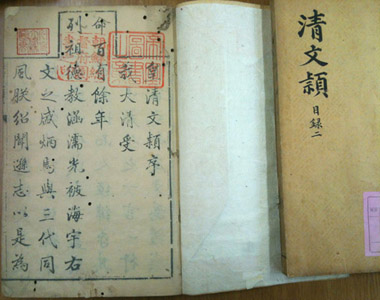 清文頴
目錄二
皇清文頴序
我大清受
命百有餘年
列祖德教涵濡光被海宇右
文之盛炳焉與三代同
風朕紹聞遜志以是為